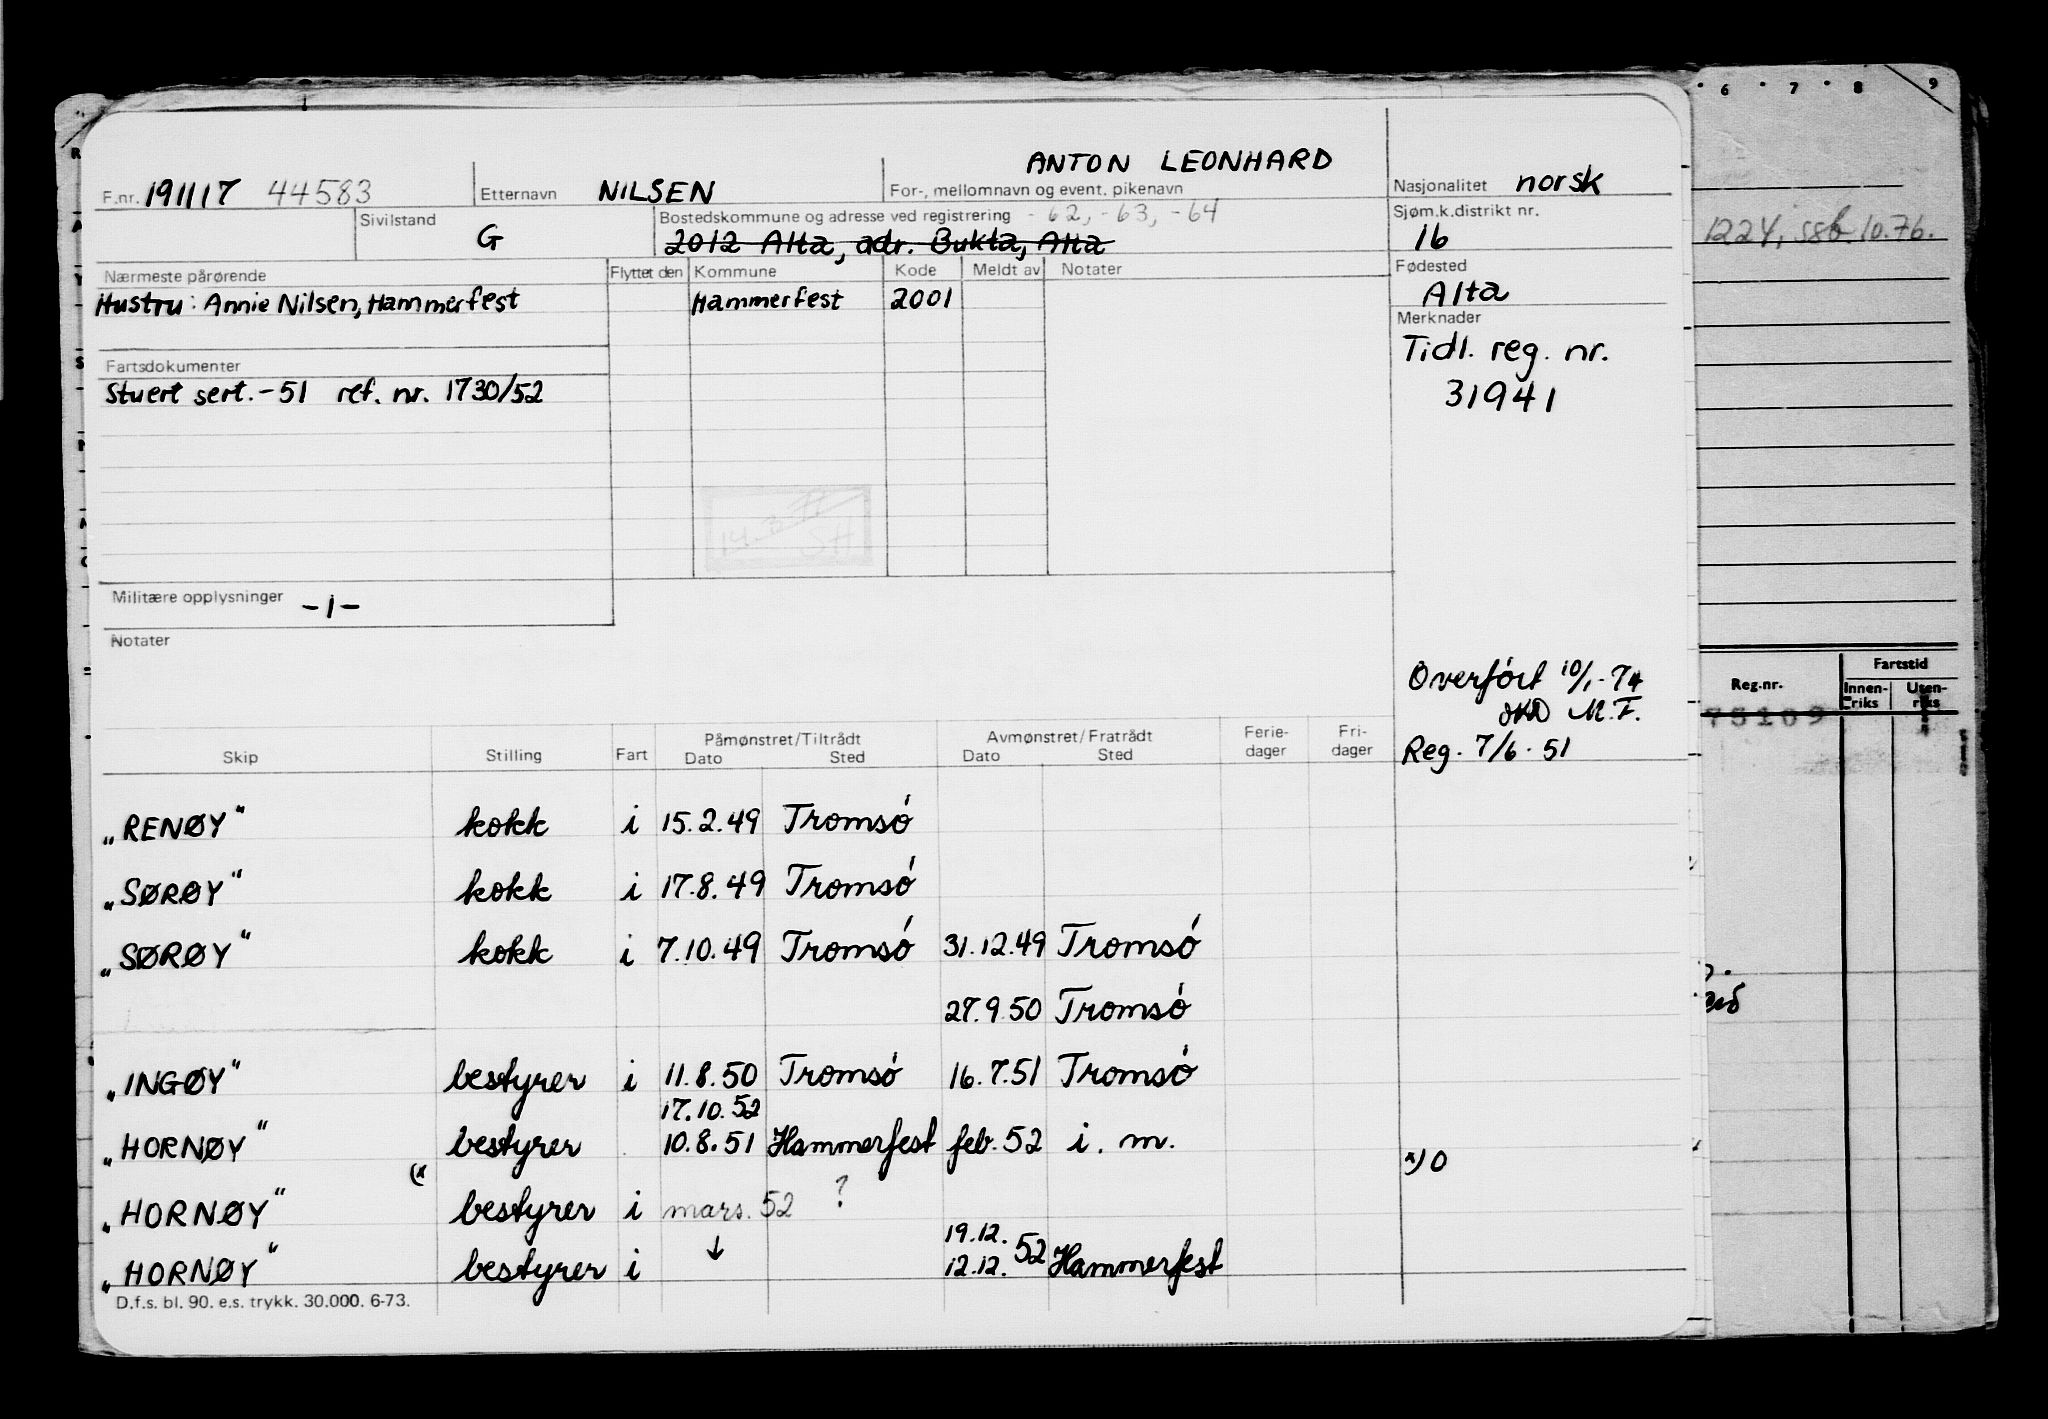 ANTON LEONHARD
F.nr. 191117 44583 Etternavn NILSEN For-, mellomnavn og event. pikenavn Nasjonalitet norsk
Sivilstand G Bostedskommune og adresse ved registrering - 62, - 63, - 64 Sjøm.k.distrikt nr.
2012 Alta, adr. Bukta, Alta 16
Nærmeste pårørende Flyttet den Kommune Kode Meldt av Notater Fødested
Hustru: Annie Nilsen, Hammerfest Hammerfest 2001 Alta
Merknader
Tidl. reg. nr.
31941
Fartsdokumenter
Stuert sert. - 51 ref. nr. 1730/52
SH
Militære opplysninger - 1 -
Notater
Overført 10/1-74
M.F.
Reg. 7/6. 51
Skip Stilling Fart Påmønstret/Tiltrådt Avmønstret/Fratrådt Ferie- Fri-
Dato Sted Dato Sted dager dager
„RENØY" kokk i 15.2.49 Tromsó
„SØRØY" kokk i 17.8.49 Tromsó
„SØRØY" kokk i 7.10.49 Tromsó 31.12.49 Tromsó
27.9.50 Tromsó
„INGØY" bestyrer i 11.8.50 Tromsó 16.7.51 Tromsó
17.10.52
„HORNØY" bestyrer 10.8.51 Hammerfest feb. 52 i. m.
(x x) 0
„HORNØY" bestyrer i mars. 52 ?
19.12.
„HORNØY" bestyrer i ↓ 12.12. 52 Hammerfest
D.f.s. bl. 90. e.s. trykk. 30.000. 6-73.
6 7 8 9
1224, ssb. 10.76.
Reg.nr. Fartstid
Innen-riks Uten-riks
75109